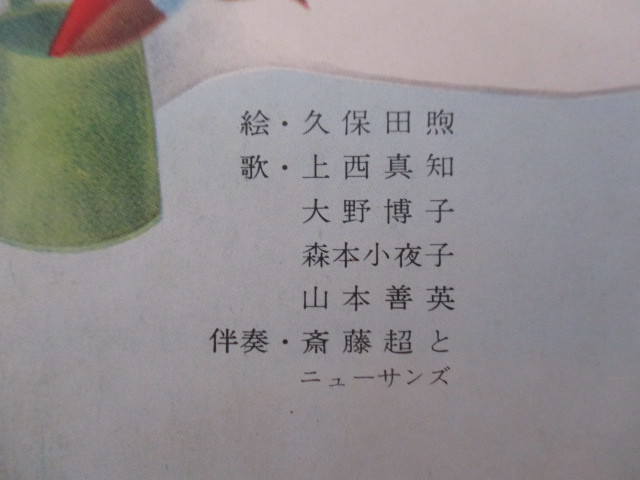 絵・久保田煦
歌・上西真知
大野博子
森本小夜子
山本善英
伴奏・斎藤超と
ニューサンズ